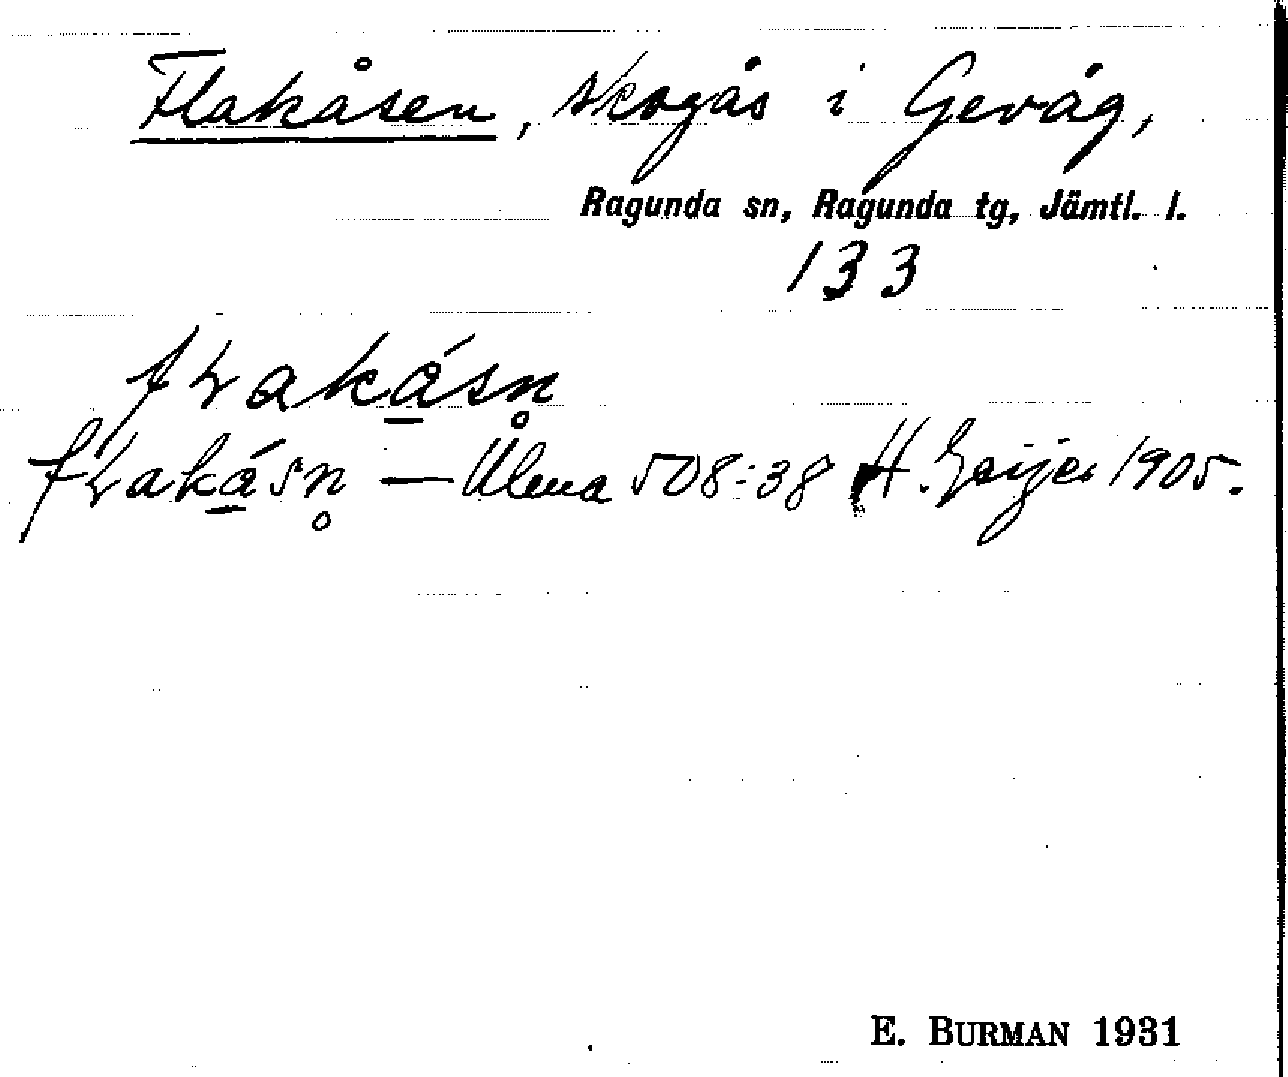 Flakåsen, skogås i Gevåg,
Ragunda sn, Ragunda tg, Jämtl. l.
133
fLakа̲́sn̥
fLaká̲sn̥ — Ulma 508:38 H. Geijer 1905.
E. BURMAN 1931